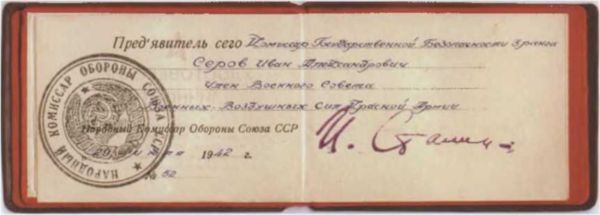 Предъявитель сего Комиссар Государственной Безопасности 3 ранга
Серов Иван Александрович
Член Военного Совета
Военных-Воздушных Сил Красной Армии
Народный Комиссар Обороны Союза ССР
И. Сталин
1942 г.
№ 52
НАРОДНЫЙ КОМИССАР ОБОРОНЫ СОЮЗА ССР